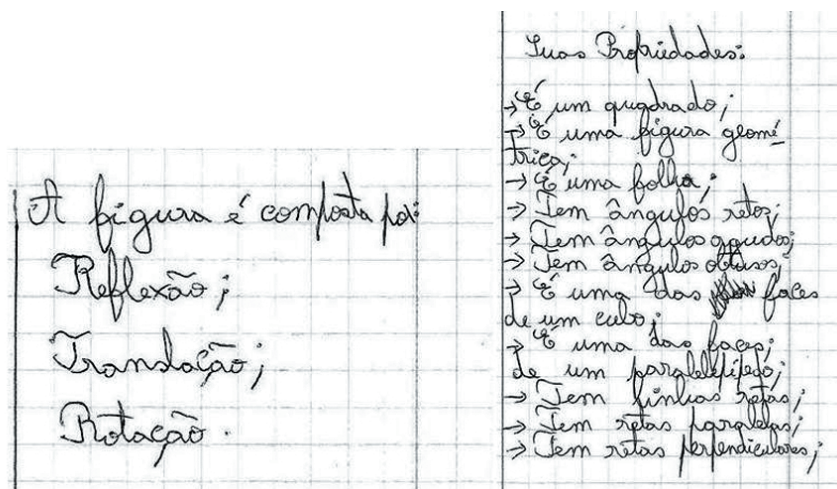 A figura é composta por:
Reflexão;
Translação;
Rotação.
Suas Propriedades:
→ É um quadrado;
→ É uma figura geomé-
trica;
→ É uma folha;
→ Tem ângulos retos;
→ Tem ângulos agudos;
→ Tem ângulos obtusos;
→ É uma das faces
de um cubo;
→ É uma das faces;
de um paralelepípedo;
→ Tem linhas retas;
→ Tem retas paralelas;
→ Tem retas perpendiculares;